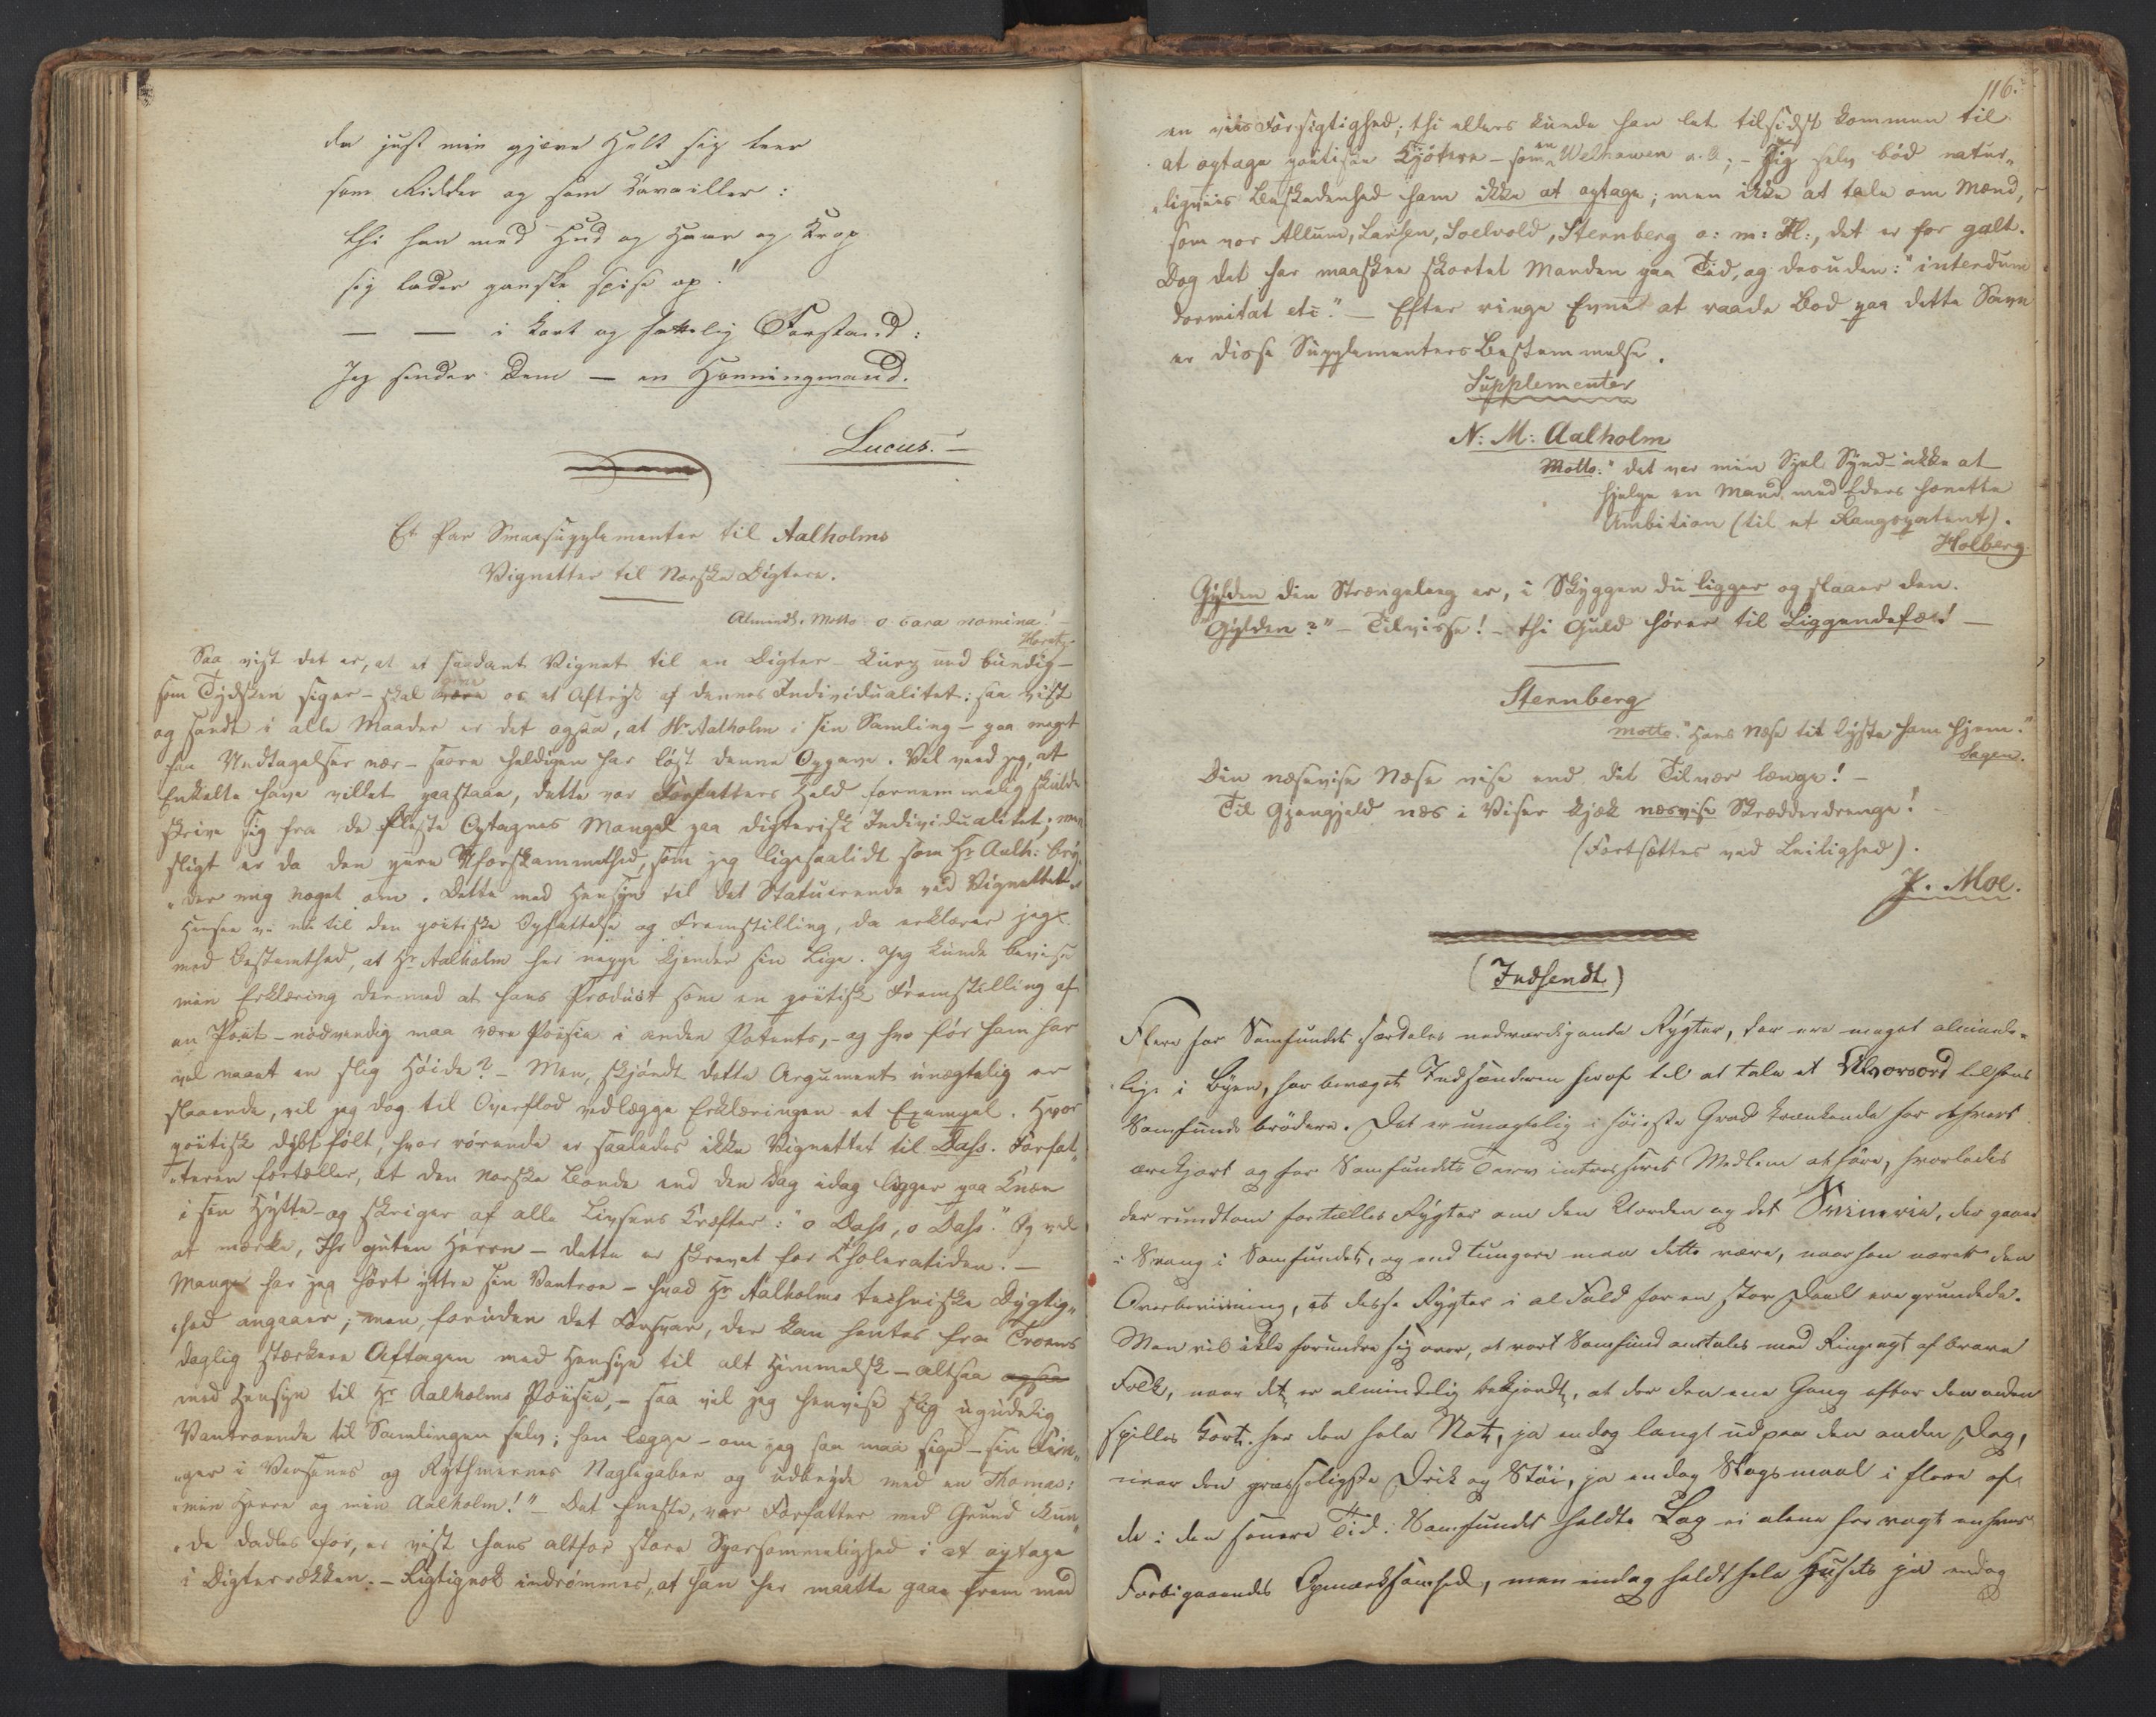 da just min gjæve Helt sig teer
som Ridder og som Cavailler:
thi han med Hud og Haar og Krop
sig lader ganske spise op!
— — i kort og fattelig Forstand:
Jeg sender Dem — en Honningmand.
Lucus. —
Et Par Smaasupplementer til Aalholms
Vignetter til Norske Digtere.
Almindl. Motto: o cara nomina! —
Horatz.
Saa vist det er, at et saadant Vignet til en Digter - kurz und bündig -
som Tydsken siger - skal give os et Aftryk af dennes Individualitet: saa vist
og sandt i alle Maader er det ogsaa, at Hr. Aalholm i sin Samling - paa meget
faa Undtagelser nær - saare heldigen har løst denne Opgave. Vel veed jeg, at
Enkelte have villet paastaae, dette vor Forfatters Held fornemmelig skulde
skrive sig fra de fleste Optagnes Mangel paa digterisk Individualitet; men
sligt er da den pure Uforskammethed, som jeg ligesaalidt som Hr Aalh: bry-
"der mig noget om. Dette med Hensyn til det Statuerende ved Vignettet.
Hensee vi nu til den poëtiske Opfattelse og Fremstilling, da erklærer jeg
med Bestemthed, at Hr Aalholm her neppe kjender sin Lige. Jeg kunde bevise
min Erklæring dermed at hans Product som en poëtisk Fremstilling af
en Poët - nødvendig maa være Poësie i anden Potents, - og hvo før ham har
vel naaet en slig Høide? - Men, skjøndt dette Argument unægtelig er
slaaende, vil jeg dog til Overflod vedlægge Erklæringen et Exempel. Hvor
poëtisk dybt følt, hvor rørende er saaledes ikke Vignettet til Dass. Forfat„
"teren fortæller, at den norske Bonde end den Dag idag ligger paa Knæe
i sin Hytte - og skriger af alle Livsens Kræfter: "o Dass, o Dass." Og vel
at mærke, Ihr guten Herrn - dette er skrevet før Choleratiden. —
Mange har jeg hørt yttre sin Vantroe - hvad Hr Aalholms techniske Dygtig„
"hed angaaer; men foruden det Forsvar, der kan hentes fra Troens
daglig stærkere Aftagen med Hensyn til alt Himmelsk - altsaa ogsaa
med Hensyn til Hr Aalholms Poësie, - saa vil jeg henvise slig ugudelig
Vantroende til Samlingen selv; han lægge - om jeg saa maa sige - sin Fin„
"ger i Versenes og Rythmernes Naglegaber og udbryde med en Thomas:
"min Herre og min Aalholm!" - Det Eneste, vor Forfatter med Grund kun„
"de dadles for, er vist hans altfor store Sparsommelighed i at optage
i Digterrækken. - Rigtignok indrømmes, at han her maatte gaae frem med
116.
en viis Forsigtighed; thi ellers kunde han let tilsidst kommen til
at optage poëtiske Kjøtere - som en Welhaven o. a; - Sig selv bød natur„
"ligviis Beskedenhed ham ikke at optage; men ikke at tale om Mænd,
som vor Allum, Larsen, Soelvold, Sternberg o: m: Fl:, det er for galt.
Dog det har maaskee skortet Manden paa Tid, og desuden: "interdum
dormitat etc". — Efter ringe Evne at raade Bod paa dette Savn
er disse Supplementers Bestemmelse.
Supplementer
N: M: Aalholm
Motto: "det var min Sjel Synd ikke at
hjelpe en Mand med Eders honette
Ambition (til et Rangspatent).
Holberg.
Gylden din Strængeleeg er, i Skyggen du ligger og slaaer den.
"Gylden?" - Tilvisse! - thi Guld hører til Liggendefæ! —
Sternberg
Motto: "Hans Næse tit lyste ham hjem."
Sagen.
Din næsevise Næse vise end dit Tilvær længe! -
Til Gjengjeld næs i Viser kjæk næsvise Skrædderdrenge!
(Fortsættes ved Leilighed).
J. Moe.
(Indsendt)
Flere for Samfundet særdeles nedværdigende Rygter, der ere meget alminde-
lige i Byen, har bevæget Indsenderen heraf til at tale et Alvorsord til sine
Samfundsbrødre. Det er unægtelig i høieste Grad krænkende for ethvert
ærekjært og for Samfundets Tarv intresseret Medlem at høre, hvorledes
der rundtom fortælles Rygter om den Uorden og det Svineri, der gaaer
i Svang i Samfundet, og end tungere maa dette være, naar han nærer den
Overbeviisning, at disse Rygter i al Fald for en stor Deel ere grundede.
Man vil ikke forundre sig over, at vort Samfund omtales med Ringeagt af brave
Folk, naar det er almindelig bekjendt, at der den ene Gang efter den anden
spilles Kort her den hele Nat, ja endog langt ud paa den anden Dag,
naar den græsseligste Drik og Støi, ja endog Slagsmaal i flere af
de i den senere Tid i Samfundet holdte Lag ei alene har vagt enhver
Forbigaaendes Opmærksomhed, men endog holdt hele Husets ja endog